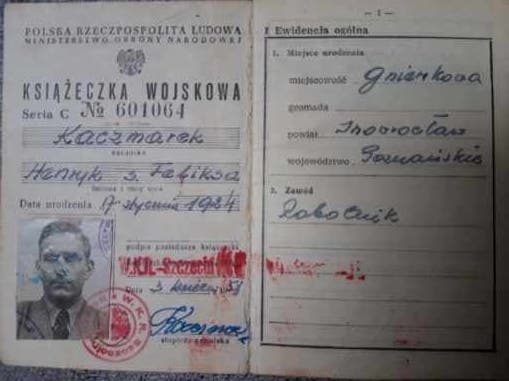 POLSKA RZECZPOSPOLITA LUDOWA
MINISTERSTWO OBRONY NARODOWEJ
KSIĄŻECZKA WOJSKOWA
Seria C № 601064
Kaczmarek
nazwisko
Henryk s. Feliksa
Data urodzenia 17 stycznia 1924
podpis posiadacza książeczki
W.K.R.-Szczecin
Data 3
— 1 —
I Ewidencja ogólna
1. Miejsce urodzenia
miejscowość Gniewkowa
gromada
powiat Inowrocław
województwo Poznańskie
2. Zawód
robotnik